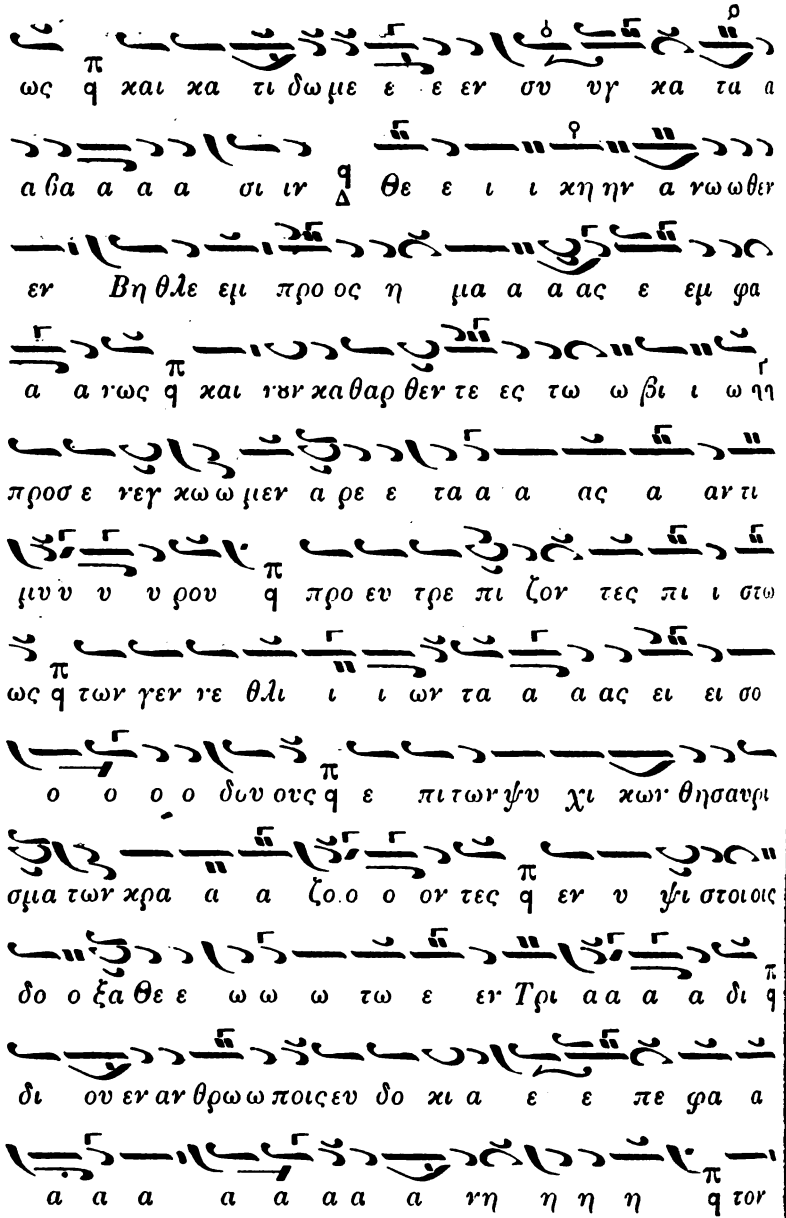 ως π ϥ και κα τι δω με ε ε εν συ υγ κα τα α
α βα α α α σι ιν ϥ Δ Θε ε ι ι κη ην α νω ω θεν
εν Βη θλε εμ προ ος η μα α α ας ε εμ φα
α α νως π ϥ και νυν κα θαρ θεν τε ες τω ω βι ι ω ηη
προσ ε νεγ κω ω μεν α ρε ε τα α α ας α αν τι
μυ υ υ υ ρου π ϥ προ ευ τρε πι ζον τες πι ι στω
ως π ϥ των γεν νε θλι ι ι ων τα α α ας ει ει σο
ο ο ο ο δου ους π ϥ ε πι των ψυ χι κων θησαυρι
σμα των κρα α α ζο ο ο ον τες π ϥ εν υ ψι στοι οις
δο ο ξα Θε ε ω ω ω τω ε εν Τρι α α α α δι π ϥ
δι ου εν αν θρω ω ποις ευ δο κι α ε ε πε φα α
α α α α α α α α νη η η η π ϥ τον